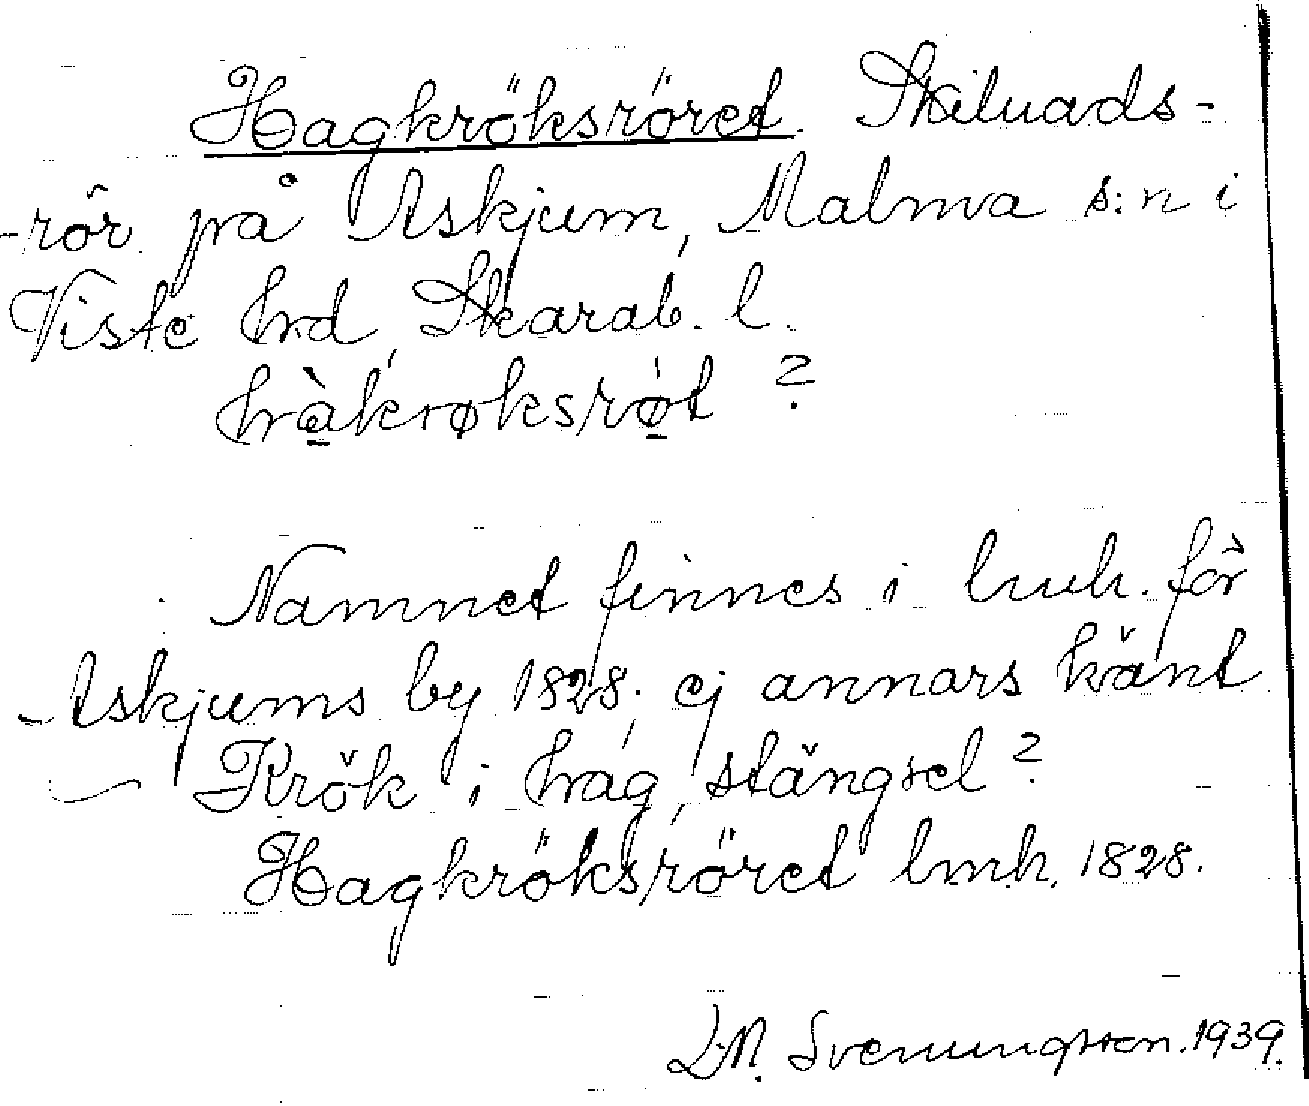 Hagkröksröret. Skiluads-
-rör på Askjum, Malma s:n i
Viste hrd, Skarab. l.
hàkrøksrøt ?
Namnet finnes i lmh. för
Askjums by 1828; ej annars känt
- Krök i hag, stängsel ?
Hagkröksröret lmh. 1828.
Svenungsson. 1939.